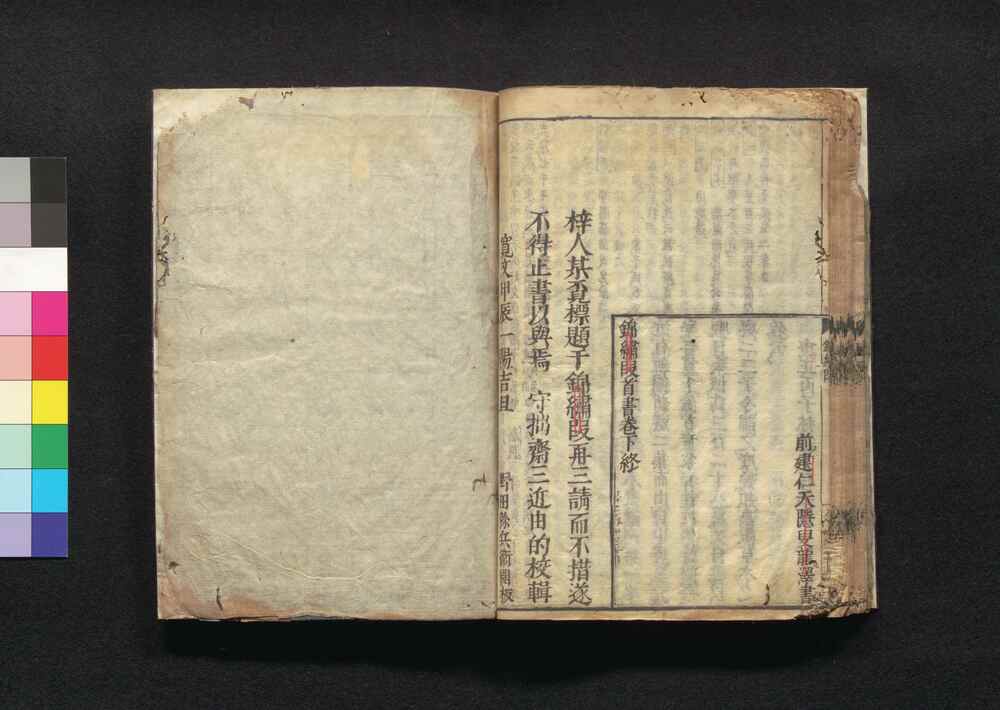 前建仁天隱叟龍澤書
錦繡段首書卷下終
梓人某覔標題于錦繡段再三請而不措遂
不得止書以與焉 守拙齋三近由的校輯
寬文甲辰一陽吉旦 野田弥兵衛開板